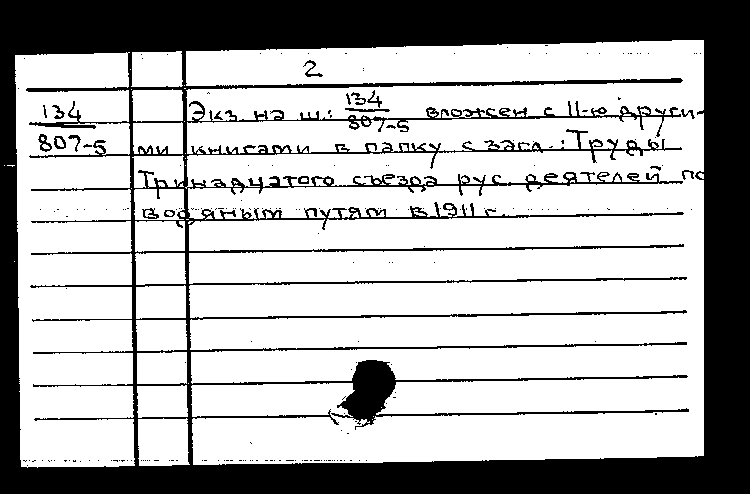 2
134
807-5
Экз. на ш.: 134/807-5 вложен с 11-ю други-
ми книгами в папку с загл.: Труды
Тринадцатого съезда рус. деятелей по
водяным путям в 1911 г.